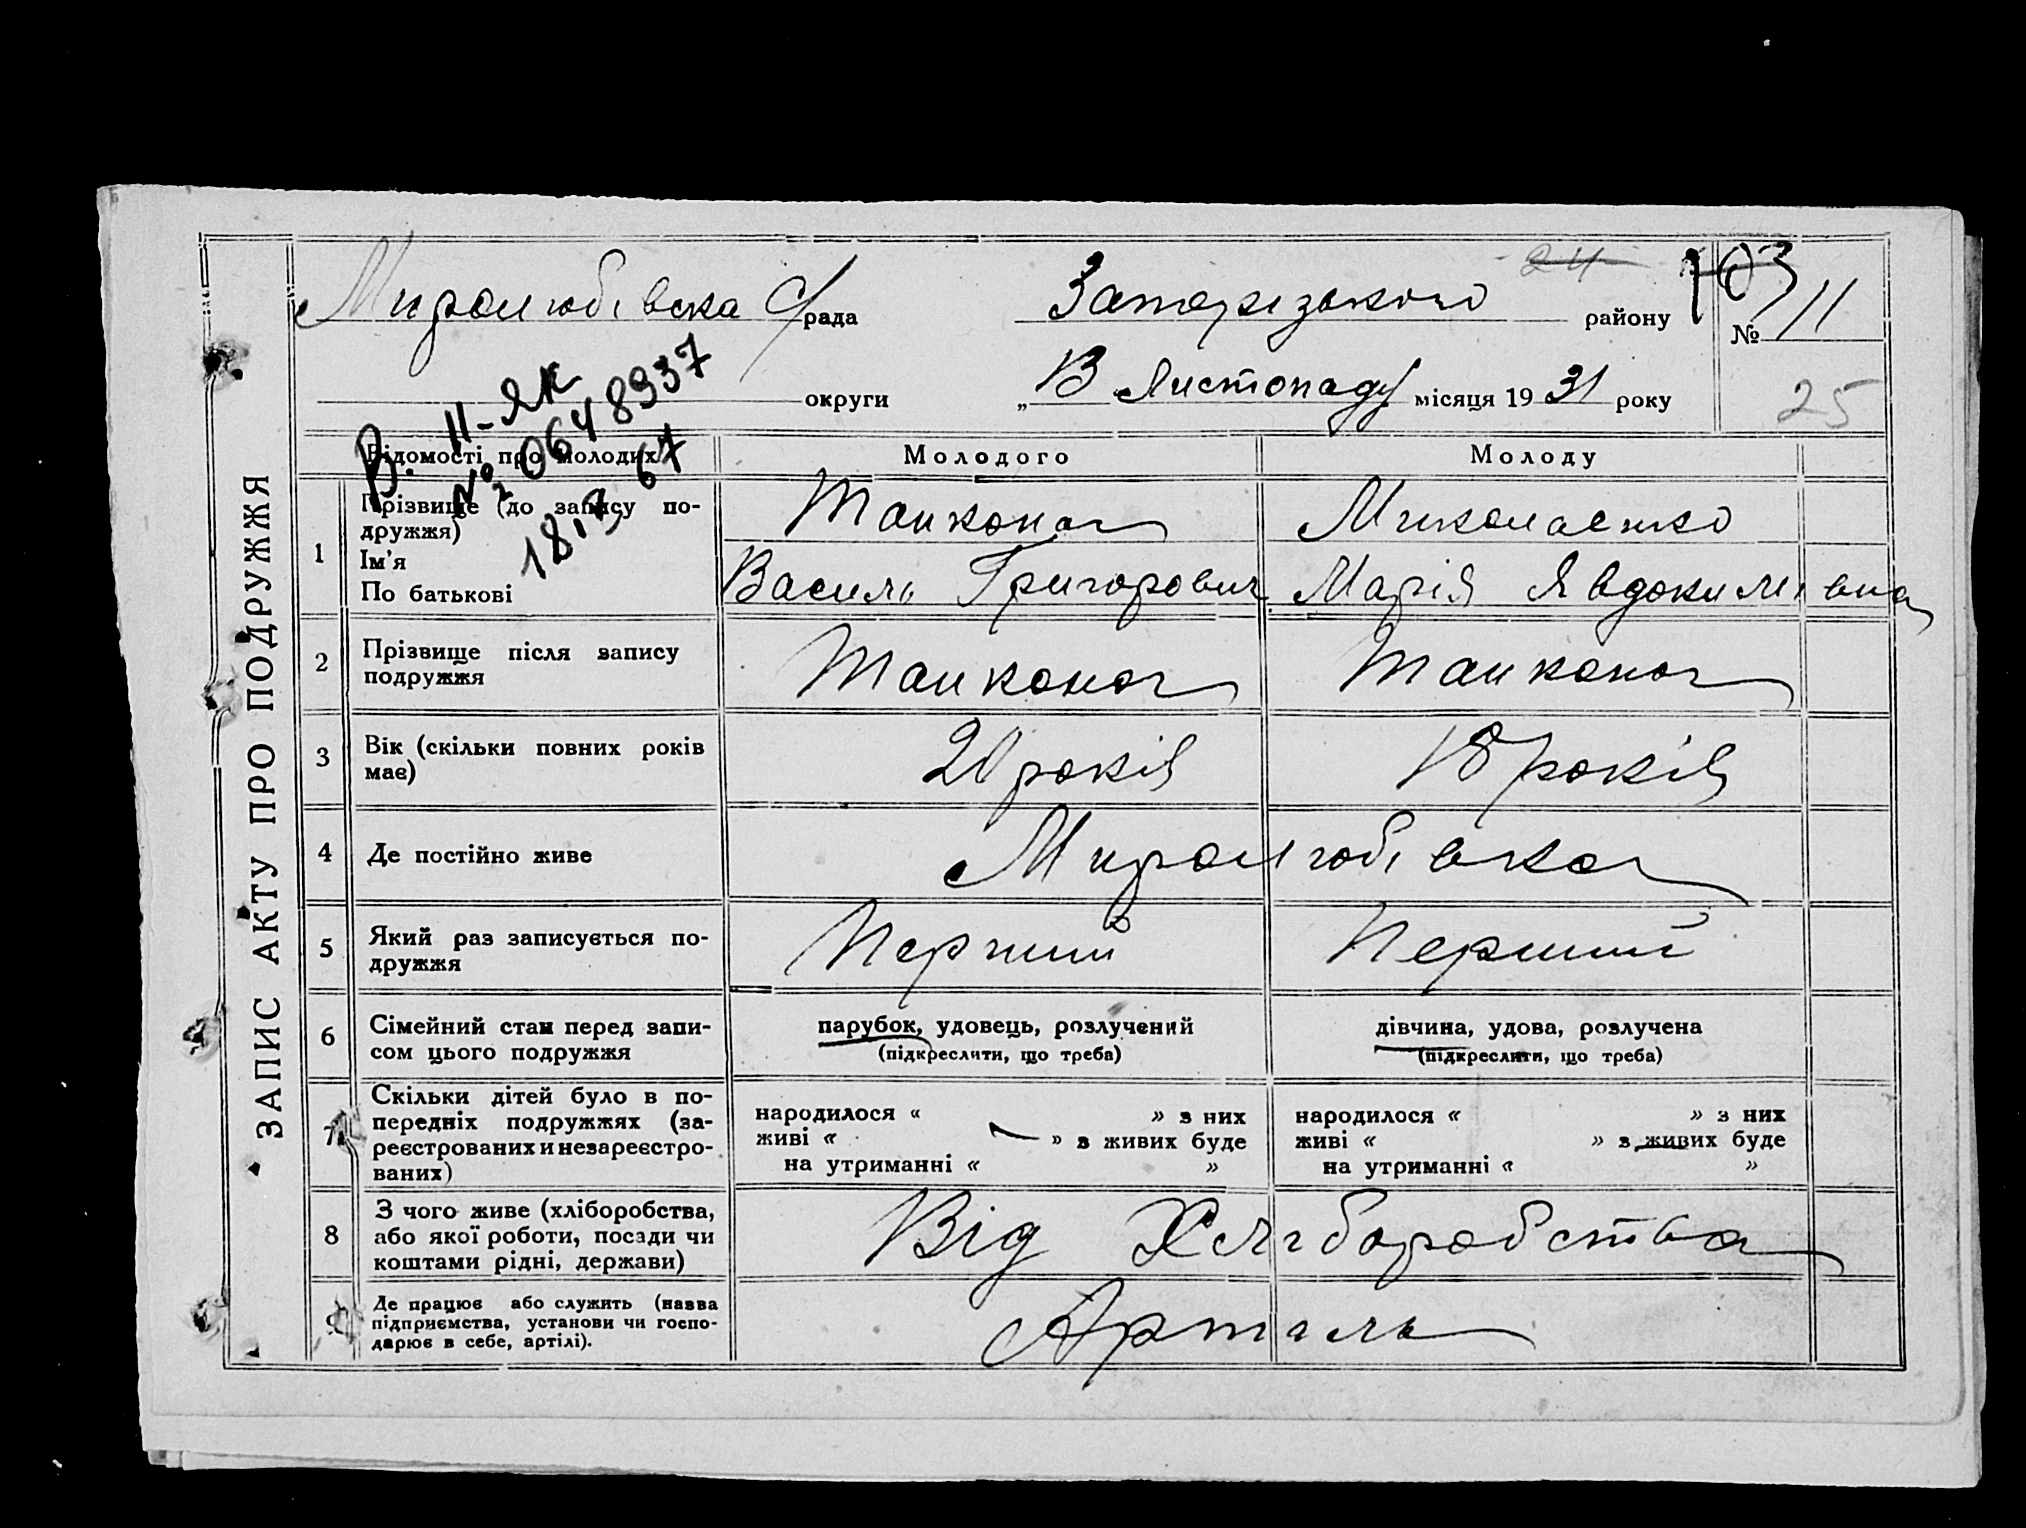 ЗАПИС АКТУ ПРО ПОДРУЖЖЯ
24
103
Миролюбівська С/рада Запорізького району № 11
округи „ 13 Листопаду місяця 1931 року
25
В. II-ЯК
№ 0648937
67
Відомості про молодих Молодого Молоду
1 Прізвище (до запису по-
дружжя)
Ім'я
По батькові
Танконог Миколаенко
Василь Григорович Марія Явдокимівна
2 Прізвище після запису
подружжя
Танконог Танконог
3 Вік (скільки повних років
має)
20 років 18 років
4 Де постійно живе Миролюбівка
5 Який раз записується по-
дружжя
Перший Перший
6 Сімейний стан перед запи-
сом цього подружжя
парубок, удовець, розлучений дівчина, удова, розлучена
(підкреслити, що треба) (підкреслити, що треба)
7 Скільки дітей було в по-
передніх подружжях (за-
реєстрованих и незареєстро-
ваних)
народилося « » з них
живі « » з живих буде
на утриманні « »
народилося « » з них
живі « » з живих буде
на утриманні « »
8 З чого живе (хліборобства,
або якої роботи, посади чи
коштами рідні, держави)
Від Хліборобства
9 Де працює або служить (назва
підприємства, установи чи госпо-
дарює в себе, артілі).
Артиль